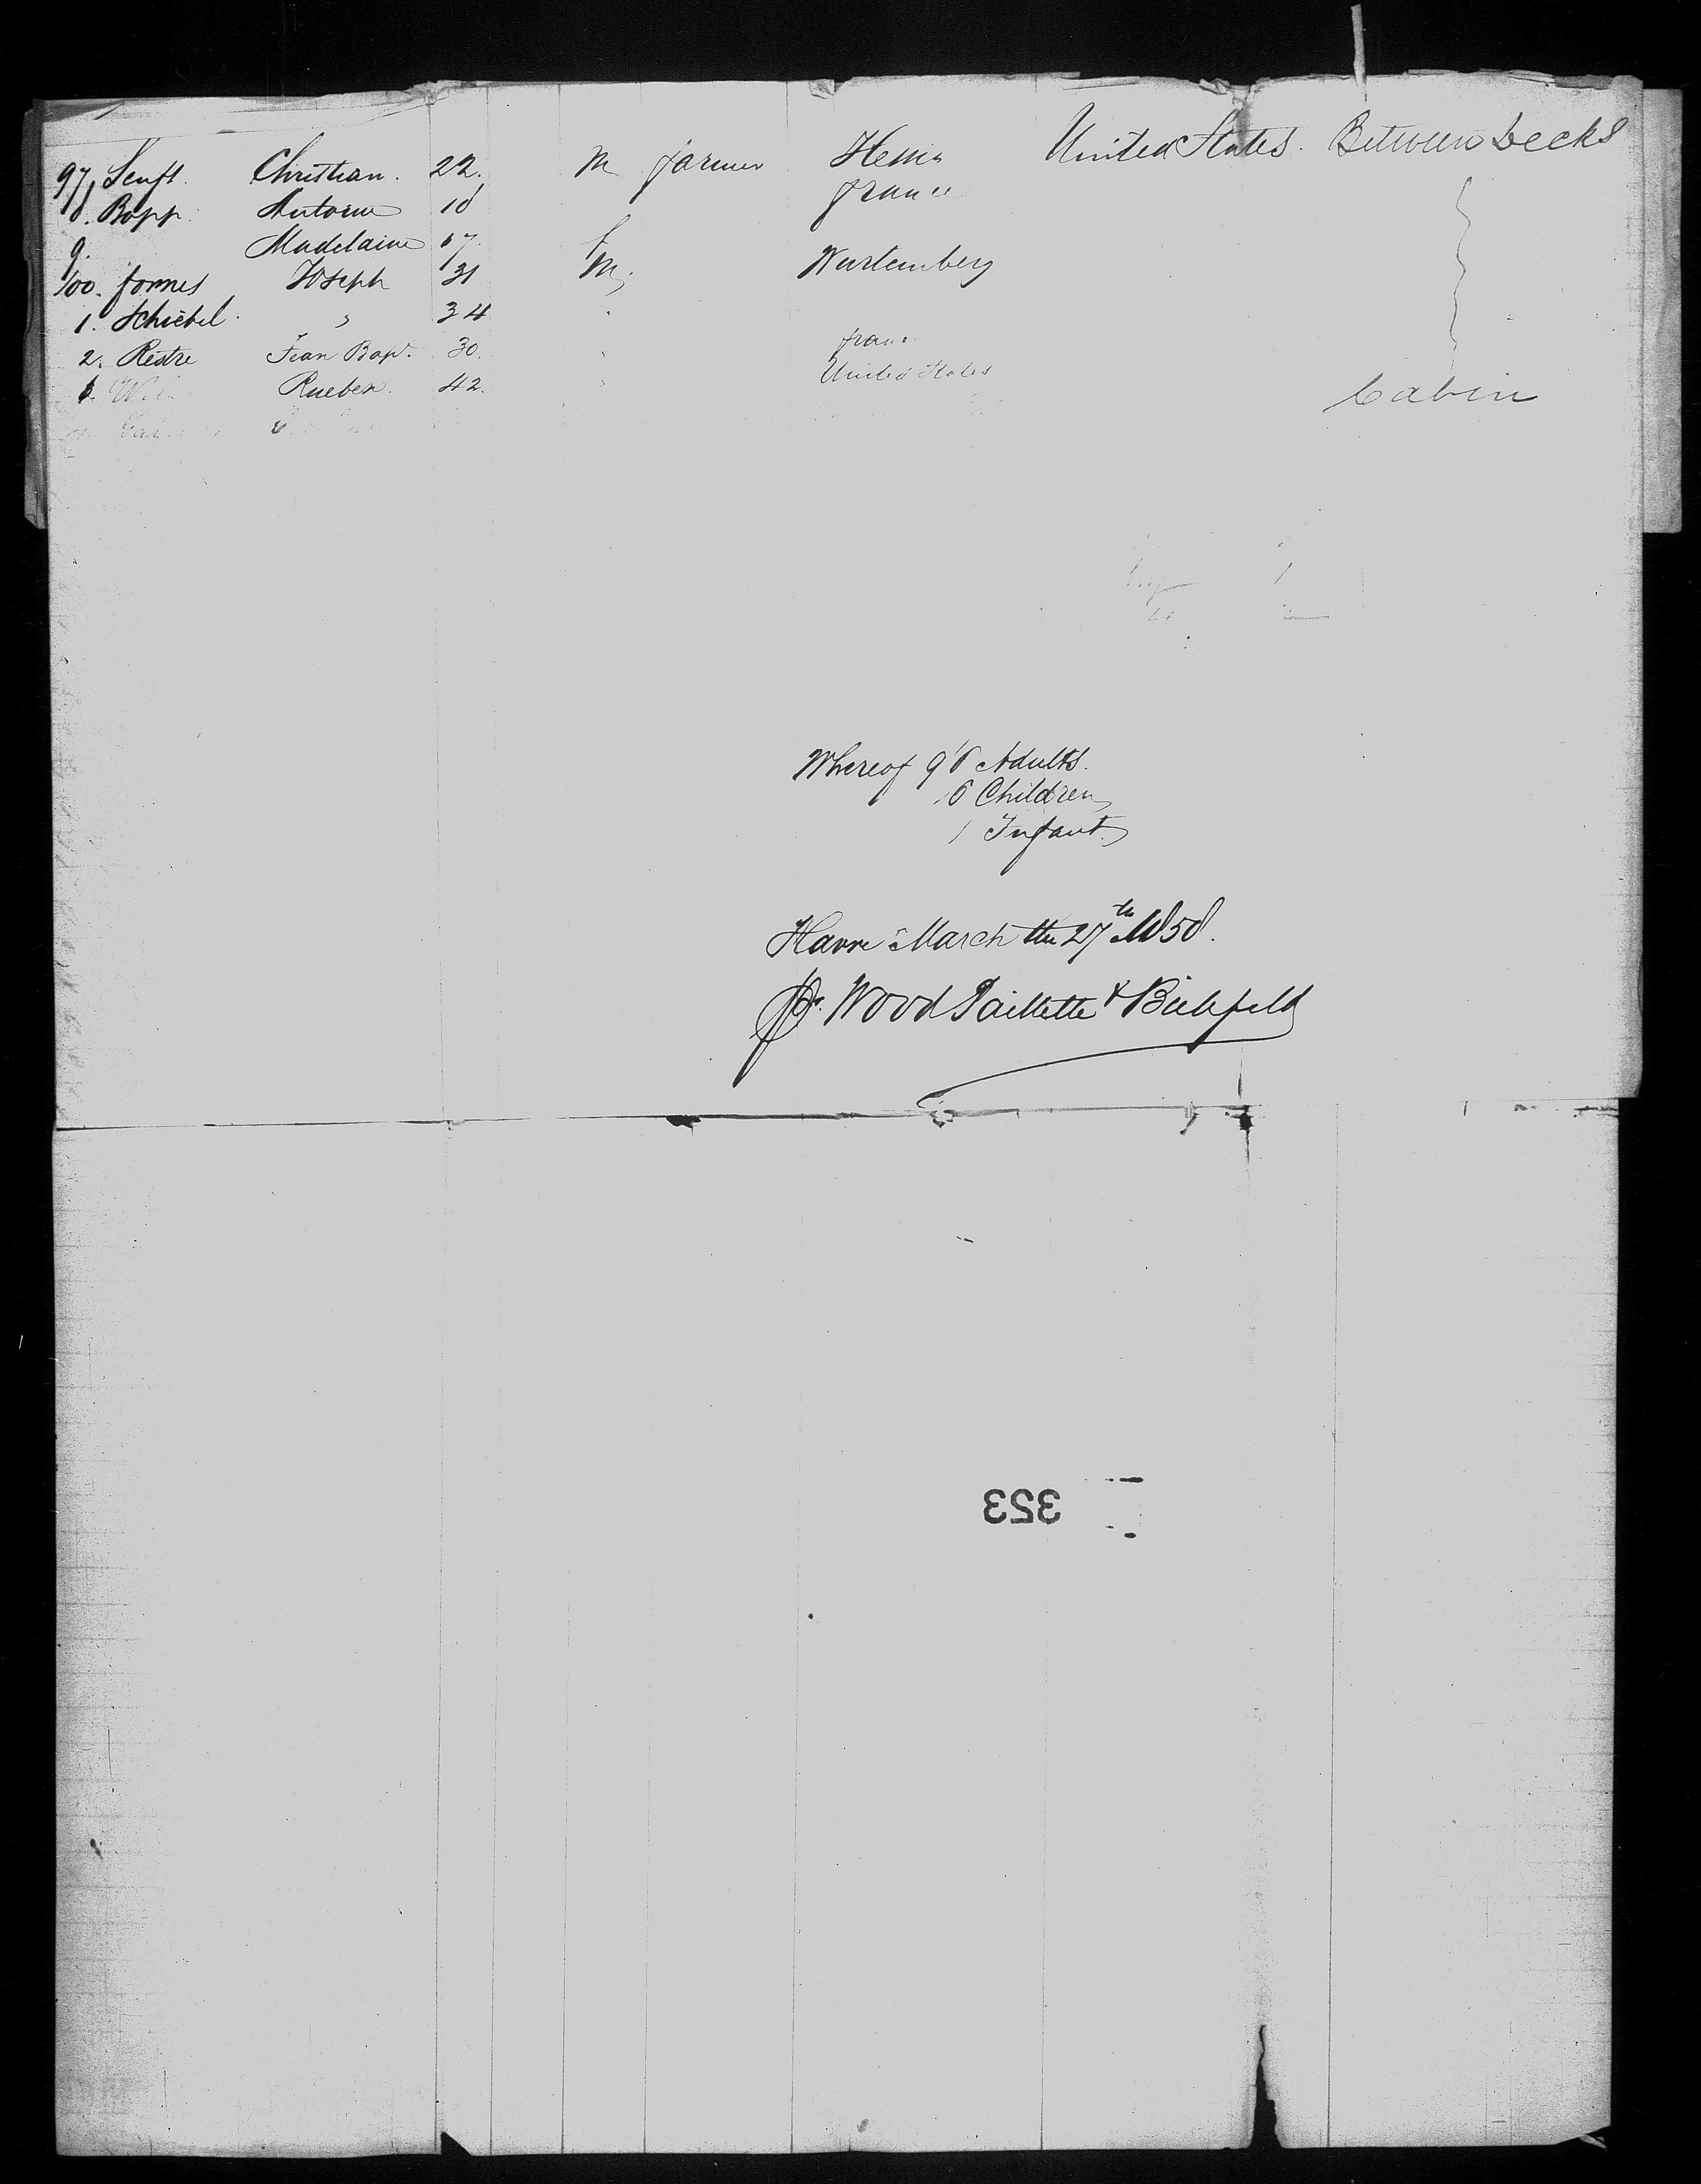 97, Senft. Christian. 22. M farmer Hessia United States. Between Decks
8. Bopp. Antoine 18 France
9. Madelaine 17. f
100. formes Joseph 31 M. Wurtemberg
1. Schiebel. " 34 "
2. Restre Jean Bapt. 30. " france
Rueben. 42. " United States Cabin
Whereof 96 Adults.
6 Children
1 Infant
Havre March the 27th 1850.
Pr. Wood Paillette & Bielefeld
323